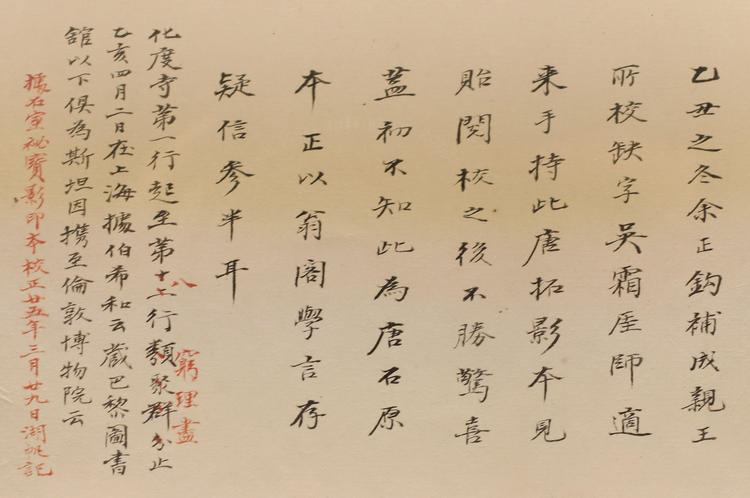 乙丑之冬余正鈎補成親王
所校缺字吳霜厓師適
来手持此唐拓影本見
貽閱校之後不勝驚喜
蓋初不知此為唐石原
本正以翁閣學言存
疑信參半耳
化度寺第一行起至第十二行類聚群分止
八
窮理盡
乙亥四月二日在上海據伯希和云藏巴黎圖書
舘以下俱為斯坦因攜至倫敦博物院云
據石室祕寶影印本校正廿五年三月廿九日湖帆記